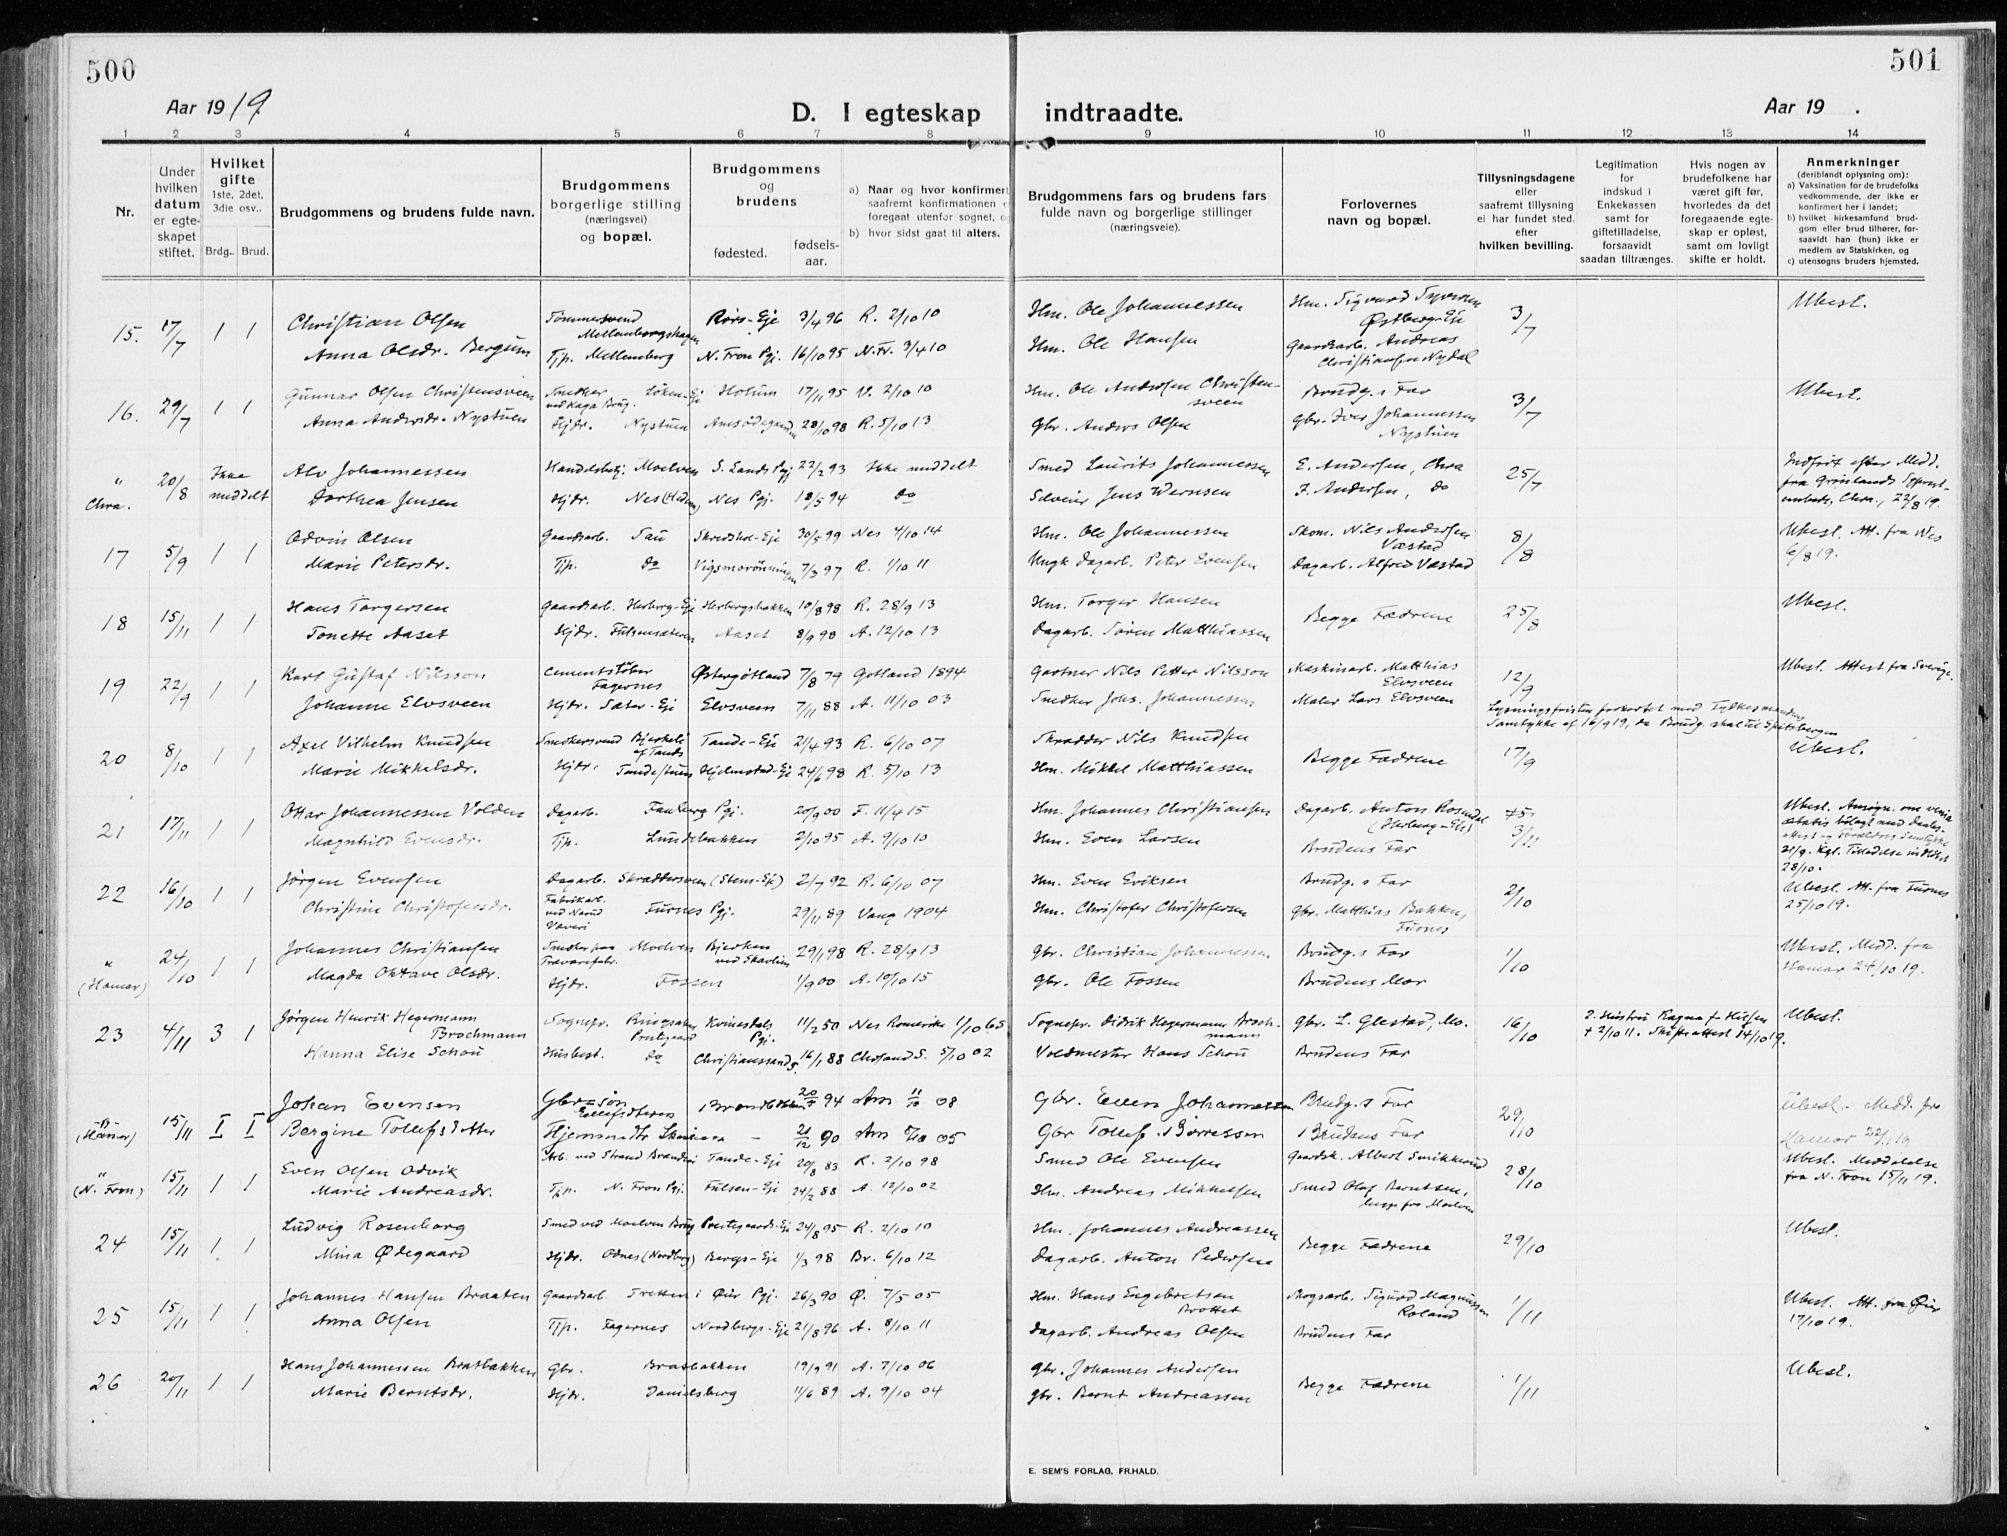 500
501
Aar 1919
D. I egteskap indtraadte.
Aar 19 .
1 2 3 4 5 6 7 8 9 10 11 12 13 14
Nr.
Under hvilken datum er egteskapet stiftet.
Hvilket gifte 1ste, 2det, 3die osv..
Brdg.. Brud.
Brudgommens og brudens fulde navn.
Brudgommens borgerlige stilling (næringsvei) og bopæl.
Brudgommens og brudens
fødested. fødsels-aar.
a) Naar og hvor konfirmert saafremt konfirmationen e foregaat utenfor sognet, og
b) hvor sidst gaat til alters.
Brudgommens fars og brudens fars fulde navn og borgerlige stillinger (næringsveie).
Forlovernes navn og bopæl.
Tillysningsdagene eller saafremt tillysning ei har fundet sted. efter hvilken bevilling.
Legitimation for indskud i Enkekassen samt for giftetilladelse, forsaavidt saadan tiltrænges.
Hvis nogen av brudefolkene har været gift før, hvorledes da det foregaaende egteskap er opløst, samt om lovligt skifte er holdt.
Anmerkninger (deriblandt oplysning om):
a) Vaksination for de brudefolks vedkommende, der ikke er konfirmert her i landet;
b) hvilket kirkesamfund brudgom eller brud tilhører, forsaavidt han (hun) ikke er medlem av Statskirken, og
c) utensogns bruders hjemsted.
15. 17/7 1 1 Christian Olsen Tømmersvend Mellemborgshagen Røis-Eje 3/4 96 R. 2/10 10 Hm. Ole Johannessen Hm. Sigvard Syversen Østberg-Eje 3/7 Ubesl.
Anna Olsdr. Bergum Tjp. Mellemberg N. Fron Pgj. 16/10 95 N. Fr. 3/4 10 Hm. Ole Hansen Gaardsarb. Andreas Christiansen Nydal
16. 29/7 1 1 Gunnar Olsen Christensveen Snedker ved Kaga Brug. Løken-Eje Holum 17/11 95 V. 2/10 10 Hm. Ole Andersen Christensveen Brudg.s Far 3/7 Ubesl.
Anna Andersdr. Nystuen Hjdr. Nystuen Amsødegaarden 28/10 98 R. 5/10 13 Gbr. Anders Olsen Gbr. Iver Johannessen Nystuen
" Chra. 20/8 Ikke meddelt Alv Johannessen Handelsbetj. Moelven S. Lands Pgj 22/2 93 Ikke meddelt Smed Laurits Johannessen E. Andersen, Chra 25/7 Indført efter Medd. fra Grønlands Sognepr.embede, Chra., 22/8 19.
Dorthea Jensen Hjdr. Nes (Hedm) Nes Pgj. 18/5 94 do Jens Wernsen F. Andersen, do
17 5/9 1 1 Odvin Olsen Gaardsarb. Sau Skredshol-Eje 30/5 99 Nes 4/10 14 Hm. Ole Johannessen Skom. Nils Andersen Væstad 8/8 Ubesl. Att. fra Nes 6/8 19.
Marie Petersdr. Tjp. do Vigsmorønningen 7/3 97 R. 1/10 11 Ungk Dagarb. Peter Evensen Dagarb. Alfred Væstad
18 15/11 1 1 Hans Torgersen Gaardsarb. Herberg-Eje Herbergsbakken 10/8 98 R. 28/9 13 Hm. Torger Hansen Begge Fædrene 25/8 Ubesl.
Tonette Aaset Hjdr. Fulsensæteren Aaset 8/9 98 A. 12/10 13 Dagarb. Søren Matthiassen
19 22/9 1 1 Karl Gustaf Nilsson Cementstøber Fagernes Østergötland 7/8 79 Gotland 1894 Gartner Nils Petter Nilsson Maskinarb. Matthias Elvsveen 12/9 Ubesl. Attest fra Sverige.
Johanne Elvsveen Hjdr. Sæter-Eje Elvsveen 7/11 88 A. 11/10 03 Snedker Johs. Johannessen Maler Lars Elvsveen
Lysningsfristen forkortet med Fylkesmandens Samtykke af 16/9 19, da Brudg. skal til Spitsbergen
20 8/10 1 1 Axel Vilhelm Knudsen Snedkersvend Bjerkeli af Tande Tande-Eje 21/4 93 R. 6/10 07 Skrædder Nils Knudsen Begge Fædrene 17/9 Ubesl.
Marie Mikkelsdr. Hjdr. Tandestuen Hjelmstad-Eje 24/6 98 R. 5/10 13 Hm. Mikkel Matthiassen
21 17/11 1 1 Ottar Johannessen Volden Dagarb. Faaberg Pgj. 20/9 00 F. 11/4 15 Hm. Johannes Christiansen Dagarb. Anton Rosendal (Herberg-Eje) 3/11 Ubesl. Ansøgn. om venia ætatis 21/9. Kgl. Tilladelse indløst 28/10.
Magnhild Evensdr. Tjp. Lundebakken 2/10 95 A. 9/10 10 Hm. Even Larsen Brudens Far
22 16/10 1 1 Jørgen Evensen Dagarb. Skræddersveen (Stens-Eje) 2/7 92 R. 6/10 07 Hm. Even Eriksen Brudg.s Far 2/10 Ubesl. Att. fra Furnes 25/10 19.
Christine Christofersdr. Fabrikarb. ved Narud Væveri Furnes Pgj. 29/11 89 Vang 1904 Hm. Christofer Christofersen Gbr. Matthias Bakken, Furnes
" (Hamar) 24/10 1 1 Johannes Christiansen Snedker paa Moelven Trævarefabr. Bjerken ved Skavlien 29/1 98 R. 28/9 13 Gbr. Christian Johannessen Brudg.s Far 1/10 Ubesl. Medd. fra Hamar 24/10 19.
Magda Oktave Olsdr. Hjdr. Fossen 1/9 00 A. 10/10 15 Gbr. Ole Fossen Brudens Mor
23 4/11 3 1 Jørgen Henrik Hegermann Brochmann Sognepr. Ringsaker Prestgaard Kvinesdals Pgj. 11/2 50 Nes Romerike 1/10 65 Sognepr. Didrik Hegermann Brochmann Gbr. L. Glestad, Mo. 16/10 2. Hustru Ragna f. + 2/10 11. Skifteattest 14/10 19. Ubesl.
Hanna Elise Schou Husbest. do Christianssand S. 16/1 88 Chrsand S. 5/10 02 Voldmester Hans Schou Brudens Far
" (Hamar) 15/11 I I Johan Evensen Gbr-søn Brandbakken 20/7 94 Am 11/10 08 Gbr. Even Johannessen Brudg.s Far 29/10 Ubesl. Medd. fra Hamar 22/11 19
Bergine Tollefsdatter Hjemmedtr - 21/12 90 Am 8/10 05 Gbr Tollef Børressen Brudens Far
" (N. Fron) 15/11 1 1 Even Olsen Odvik Arb. ved Strand Brænderi Tande-Eje 20/8 83 R. 2/10 98 Smed Ole Evensen Gaardsk. Albert Smikkerud 28/10 Ubesl. Meddelelse fra N. Fron 15/11 19.
Marie Andreasdr. Tjp. N. Fron Pgj. Fulsen-Eje 24/2 88 A. 12/10 02 Hm. Andreas Mikkelsen Smed Olaf Berntsen, begge fra Moelven
24 15/11 1 1 Ludvig Rosenborg Smed ved Moelven Brug Prestgaards-Eje 24/8 95 R. 2/10 10 Hm. Johannes Andreassen Begge Fædrene 29/10 Ubesl.
Mina Ødegaard Hjdr. Odnes (Nordberg) Bergs-Eje 1/3 98 Br. 6/10 12 Dagarb. Anton Pedersen
25 15/11 1 1 Johannes Hansen Braaten Gaardsarb. Tretten i Øier Pgj. 26/3 90 Ø. 7/5 05 Hm. Hans Engebretsen Brottet Skogsarb. Sigurd Magnussen Roland 1/11 Ubesl. Att. fra Øier 17/10 19.
Anna Olsen Tjp. Fagernes Nordbergs-Eje 21/8 96 A. 8/10 11 Dagarb. Andreas Olsen Brudens Far
26 20/11 1 1 Hans Johannessen Bratbakken Gbr. Bratbakken 19/9 91 A. 7/10 06 Gbr. Johannes Andersen Begge Fædrene 1/11 Ubesl.
Marie Berntsdr. Hjdr. Danielsberg 11/6 89 A. 9/10 04 Gbr. Bernt Andreassen
E. SEM'S FORLAG, FR.HALD.